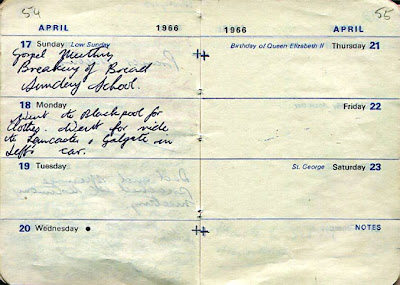 54
APRIL 1966
17 Sunday Low Sunday
Gospel Meeting
Breaking of Bread
Sunday School.
18 Monday
Went to Blackpool for
clothes. Went for ride
to Lancaster & Galgate in
Jeff's car.
19 Tuesday
20 Wednesday
55
1966 APRIL
Birthday of Queen Elizabeth II Thursday 21
Friday 22
St. George Saturday 23
NOTES